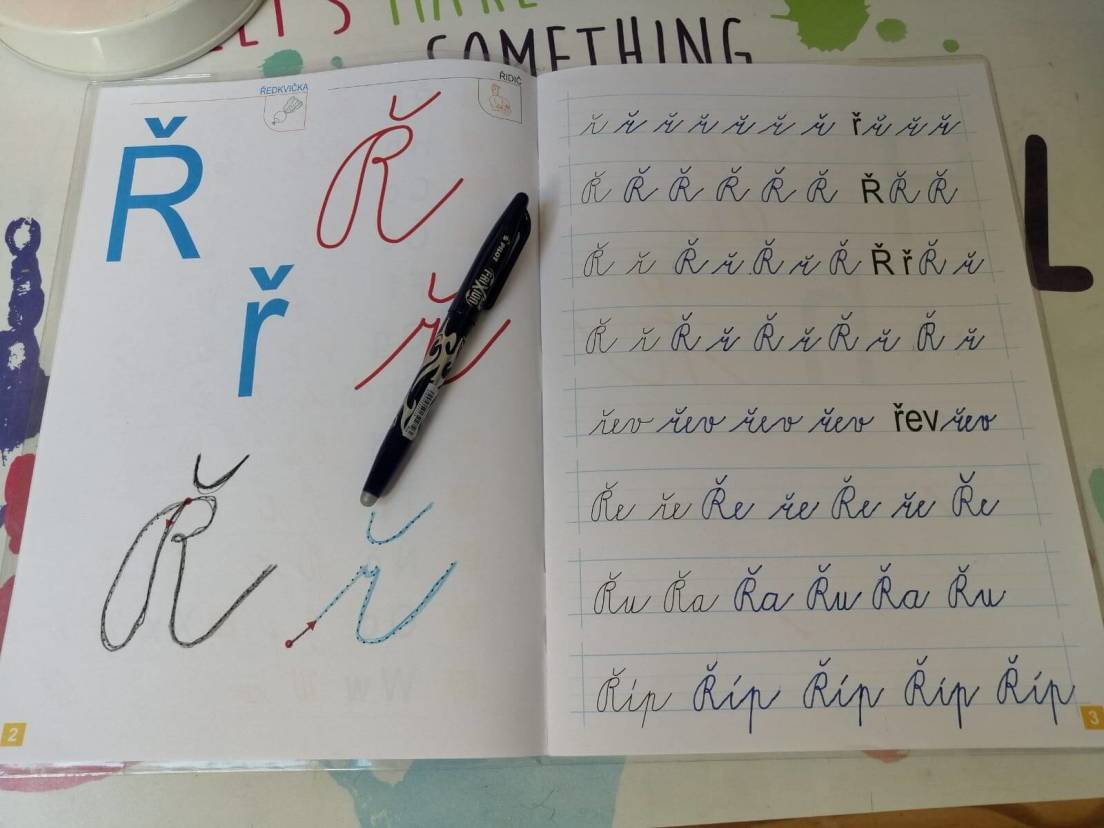 SOMETHING
L
ŘEDKVIČKA
ŘIDIČ
Ř Ř
ř ř
Ř ř
2
PILOT
FriXion
ř ř ř ř ř ř ř ř ř ř ř
Ř Ř Ř Ř Ř Ř Ř Ř Ř
Ř ř Ř ř Ř ř Ř Ř ř Ř ř
Ř ř Ř ř Ř ř Ř ř Ř ř
řev řev řev řev řev řev
Ře ře Ře ře Ře ře Ře
Řu Řa Řa Řu Řa Řu
Říp Říp Říp Říp Říp
3